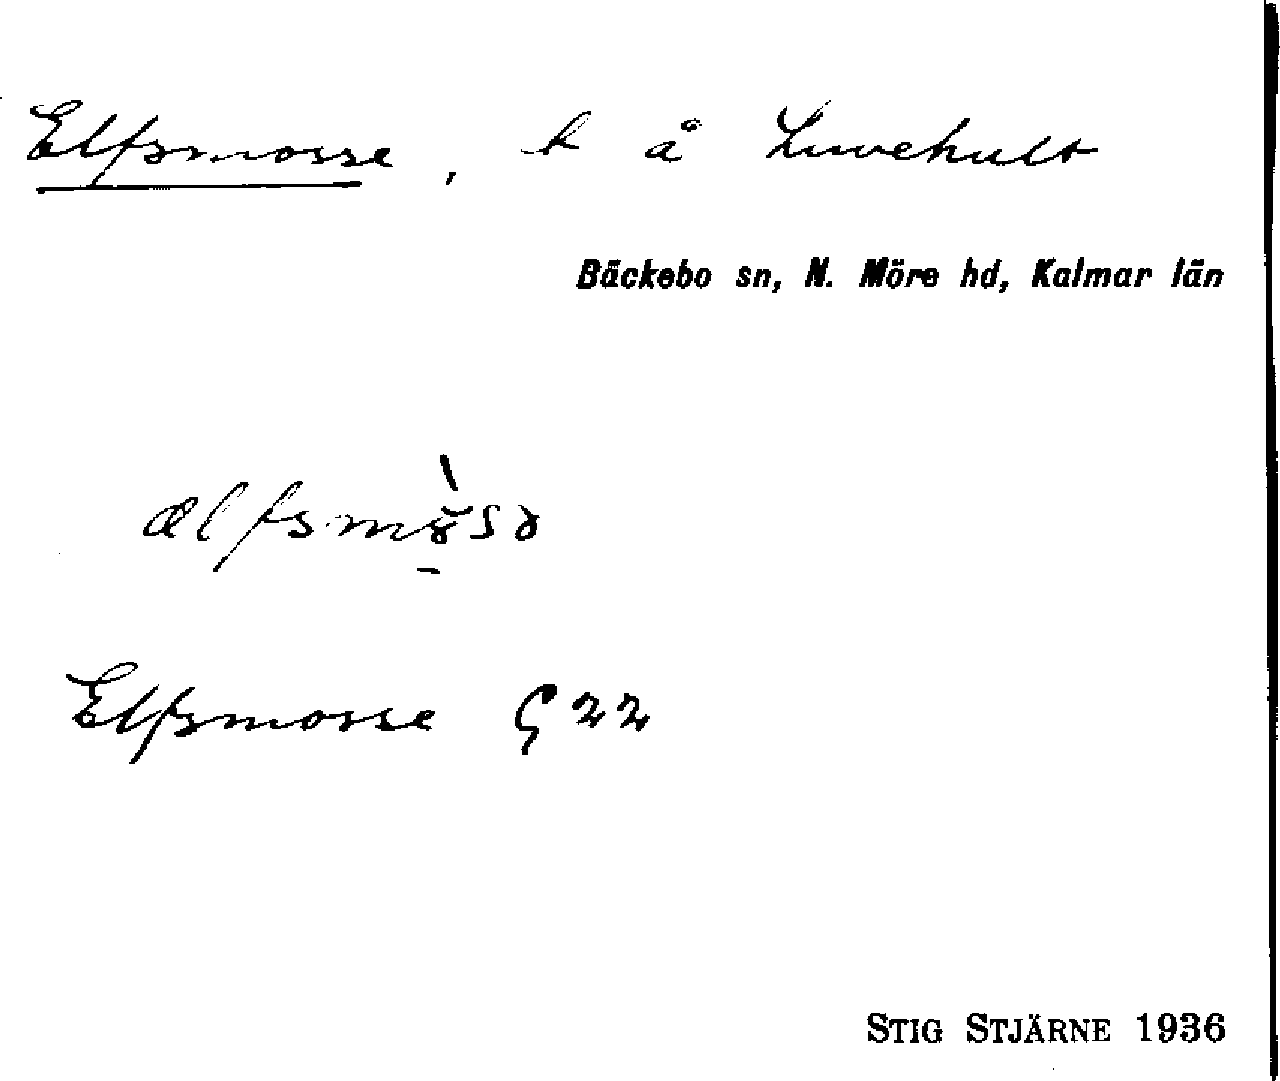 Elfsmosse, t å Luvehult
Bäckebo sn, N. Möre hd, Kalmar län
Elfsmosse G 22
STIG STJÄRNE 1936